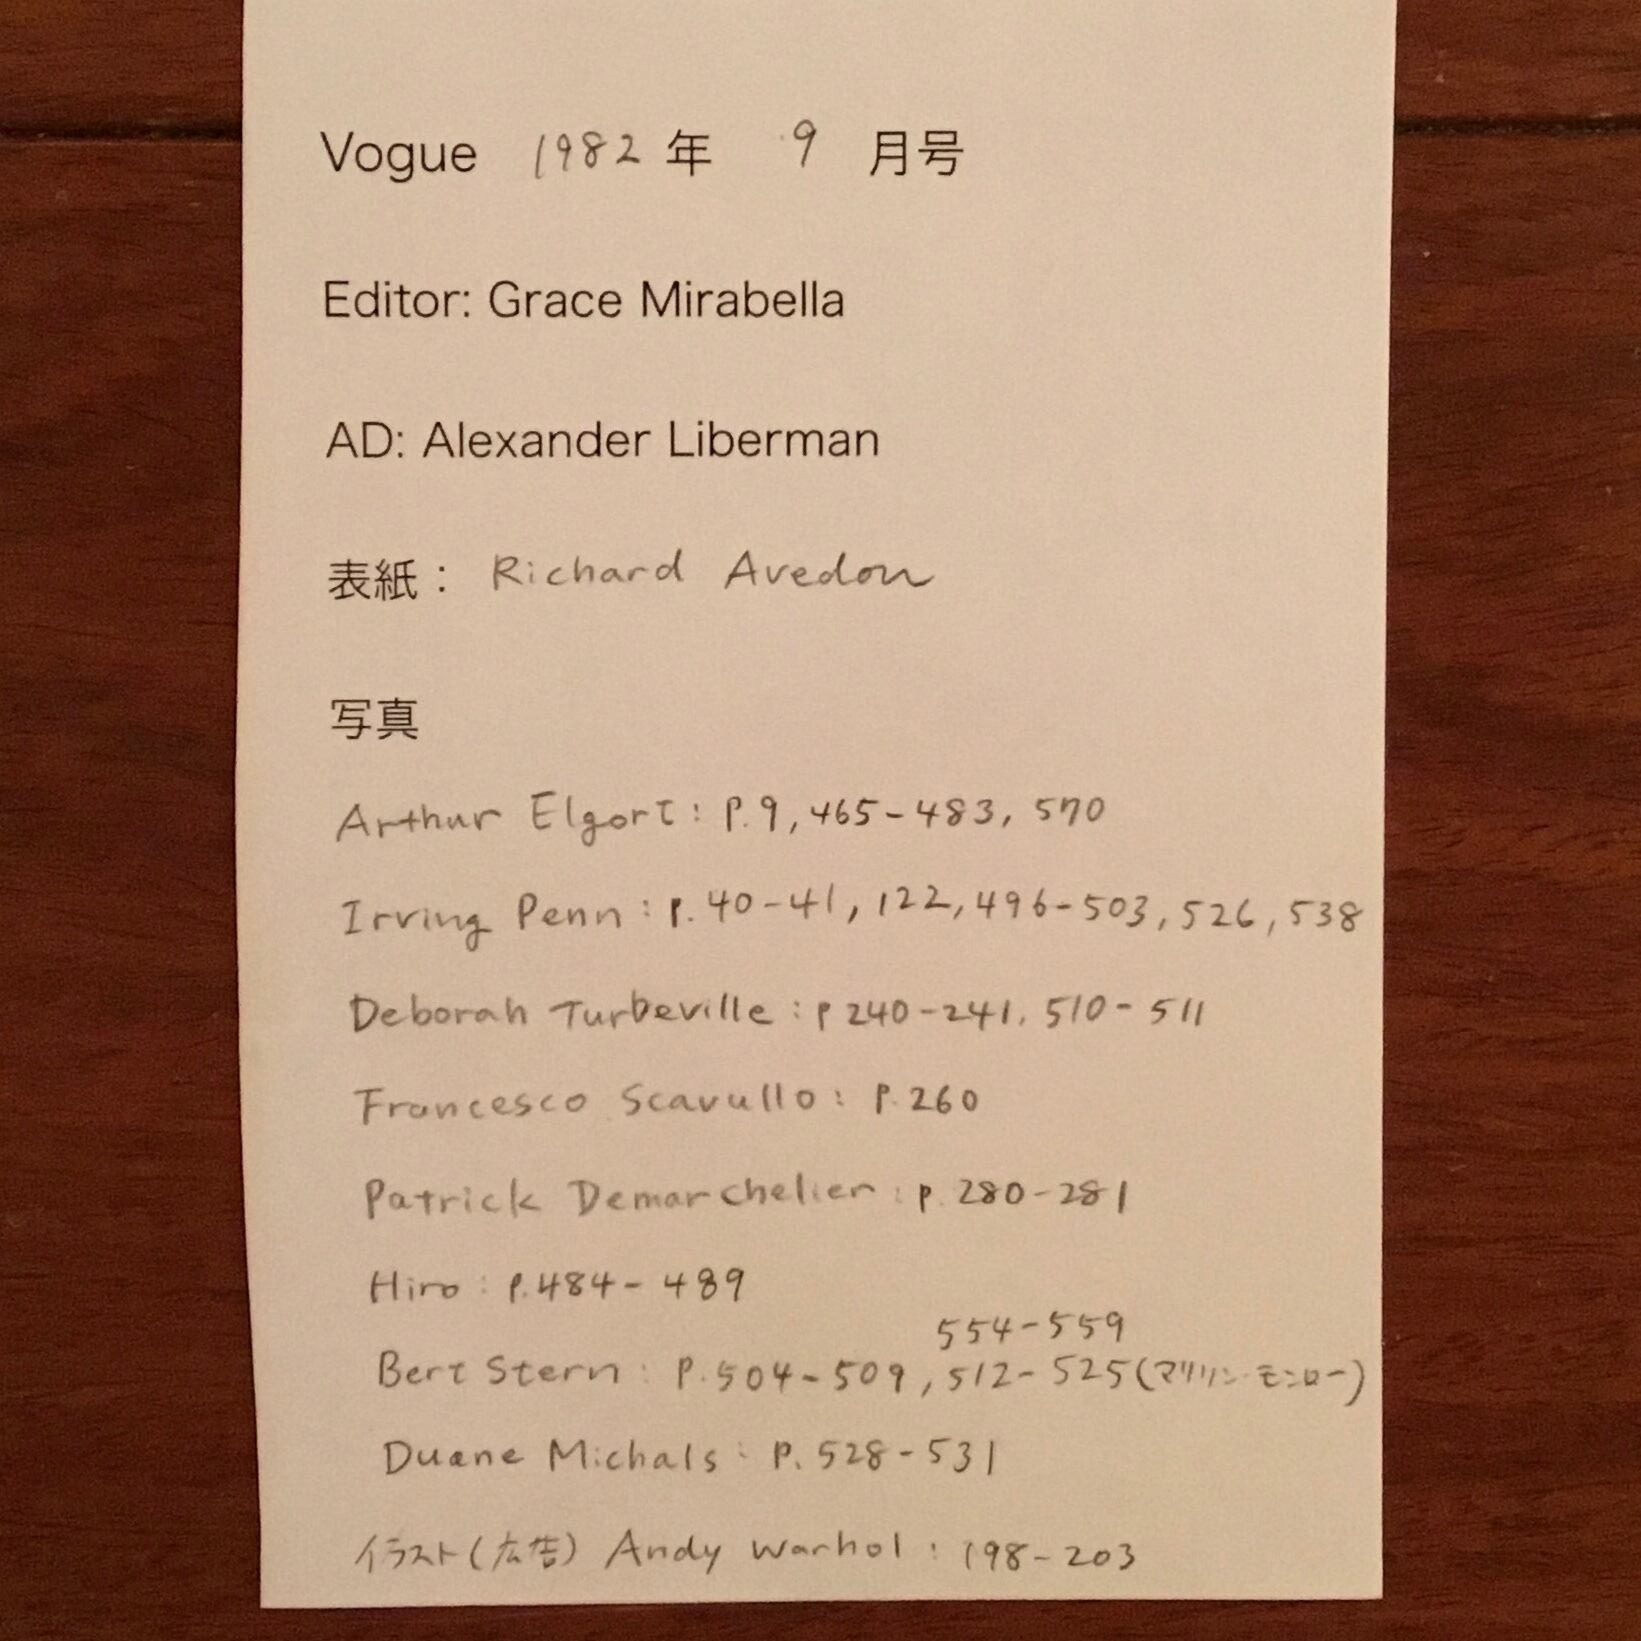 Vogue 1982 年 9 月号
Editor: Grace Mirabella
AD: Alexander Liberman
表紙： Richard Avedon
写真
Arthur Elgort: P.9, 465-483, 570
Irving Penn: P.40-41, 122, 496-503, 526, 538
Deborah Turbeville: P 240-241. 510-511
Francesco Scavullo: P.260
Patrick Demarchelier: P.280-281
Hiro: P.484-489
554-559
Bert Stern: P.504-509, 512-525(マリリン・モンロー)
Duane Michals: P.528-531
イラスト(広告) Andy Warhol: 198-203